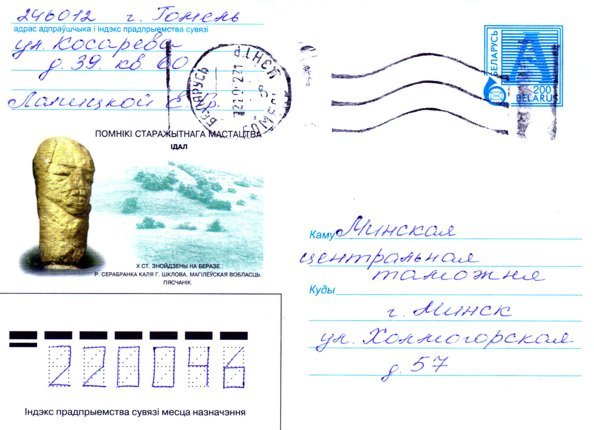 246012 г. Гомель
адрас адпраўшчыка і індэкс прадпрыемства сувязі
ул. Косарева
д. 39 кв 60
Лапицкой Е. Р.
БЕЛАРУСЬ
БЕЛАРУСЬ
A
200
BELARUS
ПОМНІКІ СТАРАЖЫТНАГА МАСТАЦТВА
ІДАЛ
X СТ. ЗНОЙДЗЕНЫ НА БЕРАЗЕ
Р. СЕРАБРАНКА КАЛЯ Г. ШКЛОВА, МАГІЛЁЎСКАЯ ВОБЛАСЦЬ.
ПЯСЧАНІК.
Каму Минская
центральная
таможня
Куды
г. Минск
ул. Холмогорская
д. 57
220046
Індэкс прадпрыемства сувязі месца назначэння